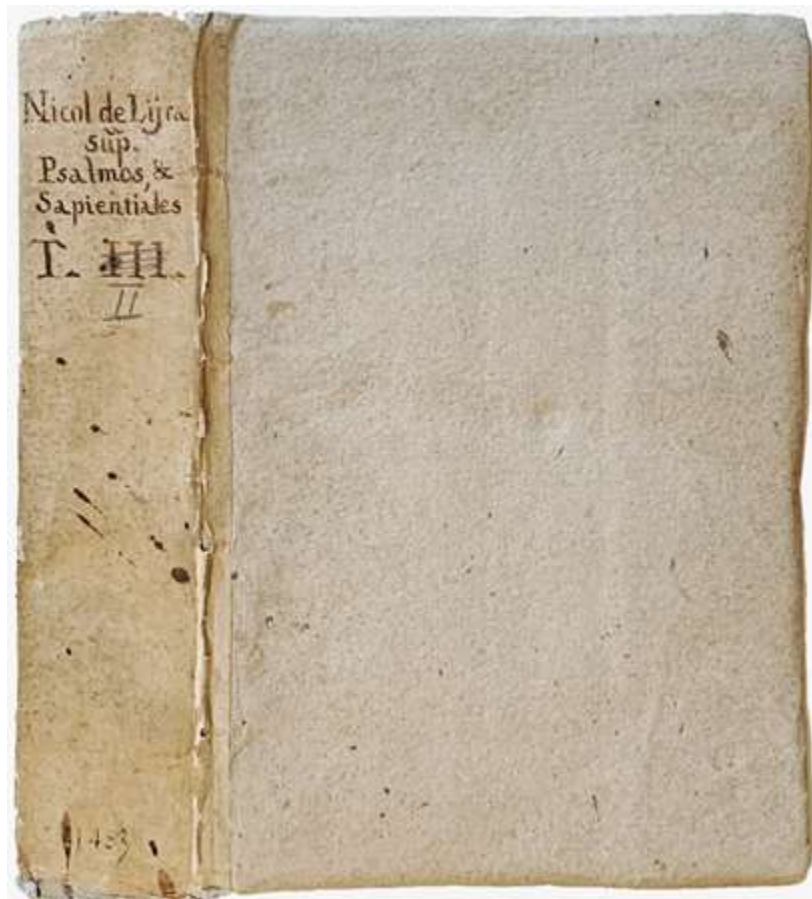 Nicol de Lijra
sup.
Psalmos, &
Sapientiales
T. III.
II